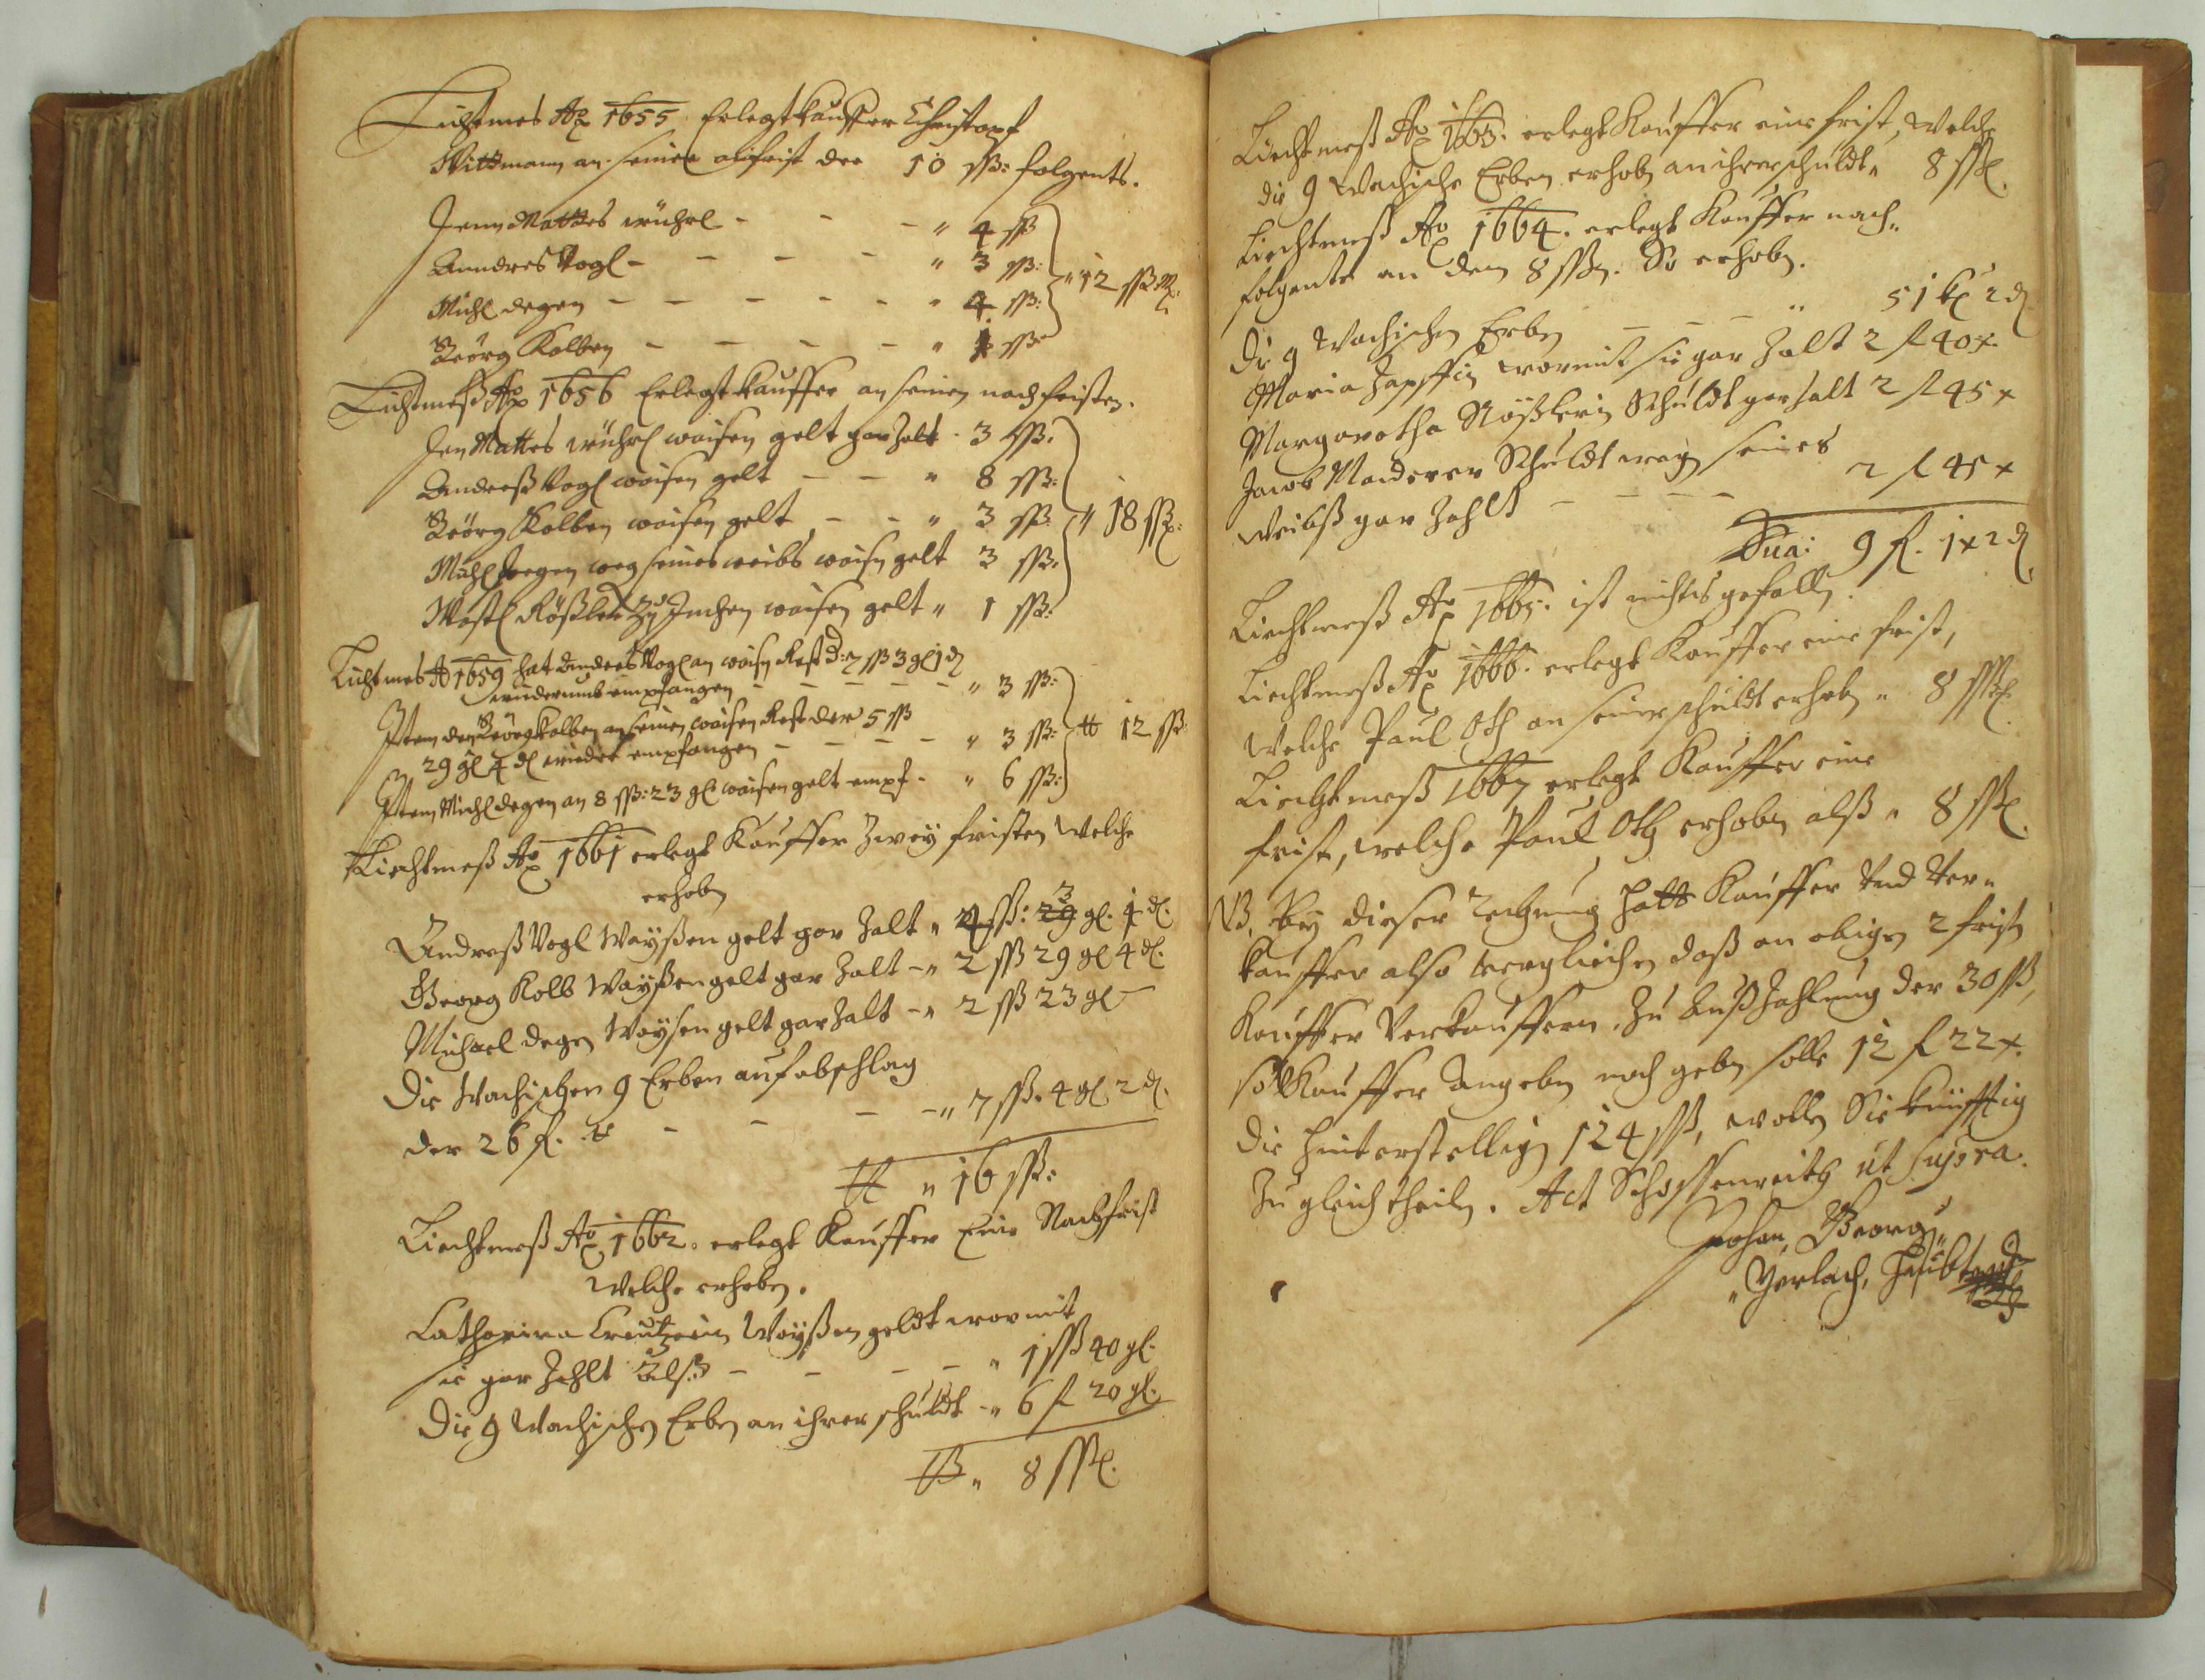 Lichtmes Ao 1655 Erlegt kauffer Christopf
Wittmann an seiner der 10 ßß: folgents.
Jenn Mattes - - - " 4 ßß
Anndres Vogl - - - - " 3 ßß:
Michl degen - - - - - - " 4 ßß: " 12 ßß
Geörg Kolben - - - - " 1 ßß
Lichtmeß Ao 1656 Erlegt kauffer an seinen nachfristen.
Jen Mattes waisen gelt gar zalt - 3 ßß:
Andreaß Vogl waisen gelt - - " 8 ßß:
Geörg Kolben waisen gelt - - " 3 ßß: " 18 ßß:
Michl degen weg seines weibs waisn gelt 3 ßß:
Wastl Rößler Zu waisen gelt " 1 ßß:
Lichtmes Ao 1659 hat Andres Vogl an waisn Rest d: 7 ßß 3 gl 1 d
widerumb empfangen - - - - - " 3 ßß:
Item der Geörg Kolben an seinen waisen Rest der 5 ßß
29 gl 4 dl wieder empfangen - - - - " 3 ßß: 12 ßß
Item Michl degen an 8 ßß: 23 gl waisen gelt empf. " 6 ßß:
Liechtmeß Ao 1661 erlegt Kauffer Zwey fristen welche
erhobn
Andreß Vogl Wayßen gelt gar Zalt " 4 ßß: 3 gl. 1 d.
Georg Kolb Wayßen gelt gar Zalt -" 2 ßß 29 gl 4 d.
Michael degen Waysen gelt gar Zalt -" 2 ßß 23 gl
Die Wachischen 9 Erben auf abschlag
der 26 fl. - - - -" 7 ßß. 4 gl 2 d.
" 16 ßß:
Liechtmeß Ao 1662. erlegt Kauffer Eine Nachfrist
welche erhoben.
Catharina Creutzerin Wayßen geldt wormit
sie gar Zahlt alß - - - - " 1 ßß 40 gl.
Die 9 Wachischen Erben an ihrer schuldt -" 6 fl 20 gl.
" 8 ßß.
Liechtmeß Ao 1663. erlegt Kauffer eine frist, welche
die 9 Wachische Erben erhobn an ihrer schuldt " 8 ßß.
Liechtmeß Ao 1664. erlegt Kauffer nach„
folgente an den 8 ßßn. So erhobn.
Die 9 Wachischen Erben - - - " 51 kr 2 d
Maria Zapffin wormit sie gar Zalt 2 fl 40 x.
Margaretha Rößlerin Schuldt gar zalt 2 fl 45 x
Jacob Maderer Schuldt weg seines
Weibß gar Zahlt - - - - 2 fl 45 x
Sua: 9 fl. 1 x 2 d
Liechtmeß Ao 1665. ist nichts gefalln.
Liechtmeß Ao 1666. erlegt Kauffer eine frist,
welche Paul Oth an seiner schuldt erhobn " 8 ßß.
Liechtmeß 1667 erlegt Kauffer eine
frist, welche Paul Oth erhobn alß " 8 ßß.
NB. Bey dieser Rechnung hatt Kauffer und Ver„
kauffer also verglichen daß an obigen 2 fristn
Kauffer Verkauffern, Zu Außzahlung der 30 ßß,
so Kauffer angebn noch gebn solle 12 fl 22 x.
Die hinterstellign 124 ßß, wolln Sie künfftig
zu gleich theiln. Act Schossenreith ut supra.
Johan Georg
Gerlach,